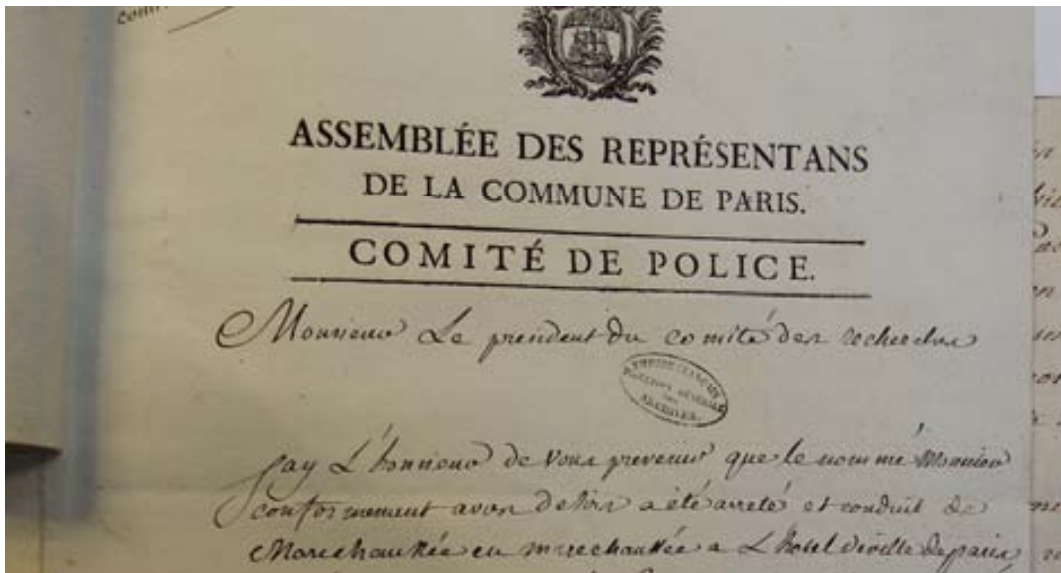 ASSEMBLÉE DES REPRÉSENTANS
DE LA COMMUNE DE PARIS.
COMITÉ DE POLICE.
Monsieur Le president du comité des recherches
EMPIRE FRANÇAIS
ARCHIVES
jay L'honneur de vous prevenir que le nommé
conformement a été arreté et conduit de
Marechaussée en marechaussée a L'hotel deville de paris